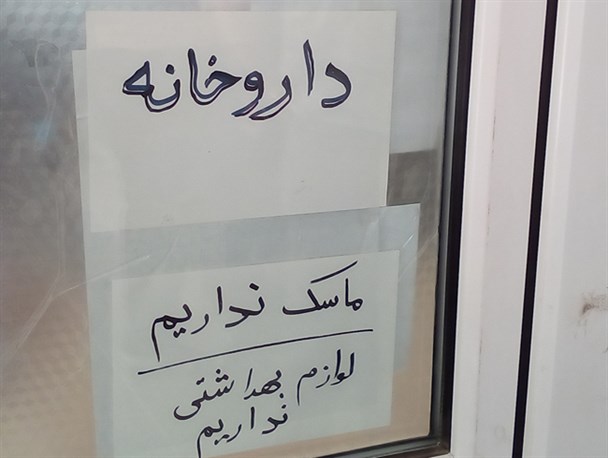 داروخانه
ماسک نداریم
لوازم بهداشتی
نداریم